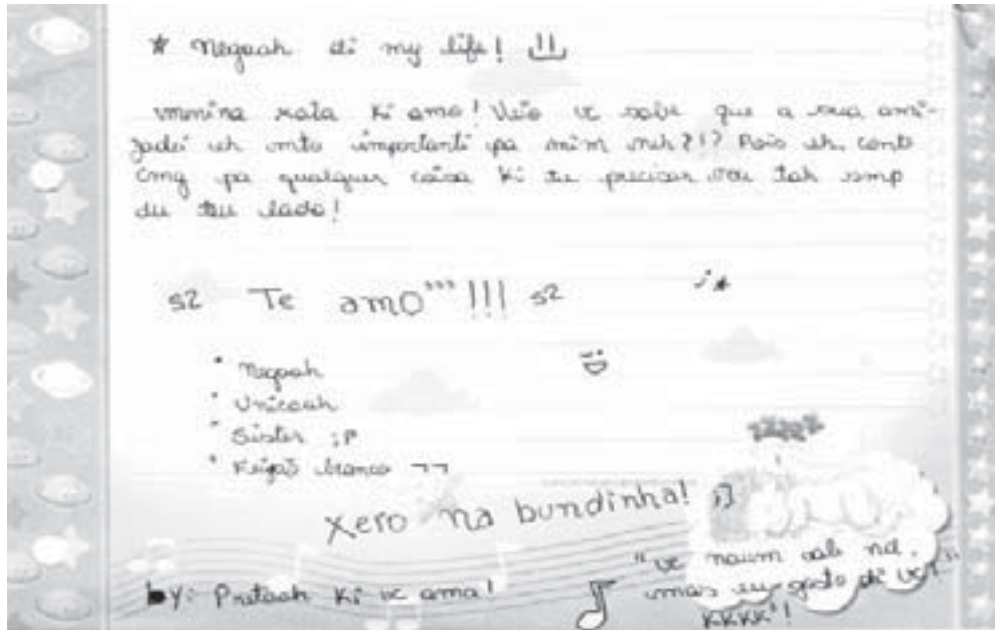 * Negaah di my life! 
mmina xata ki amo! Veio vc sabe que a sua ami-
zadei eh mto importanti pa mim neh?!? Pois eh, conta
cmg pa qualquer coisa ki tu precisar vou tah smp
du teu lado!
s2 Te amo"""!!! s2
* Negaah
* Unicaah
* Sister ;P
* Feijaõ branco ¬¬
Xero na bundinha! ;]
"vc naum vale nd,
mas eu gosto di vc!"
KKKK'!
by: Pretaah Ki vc ama!